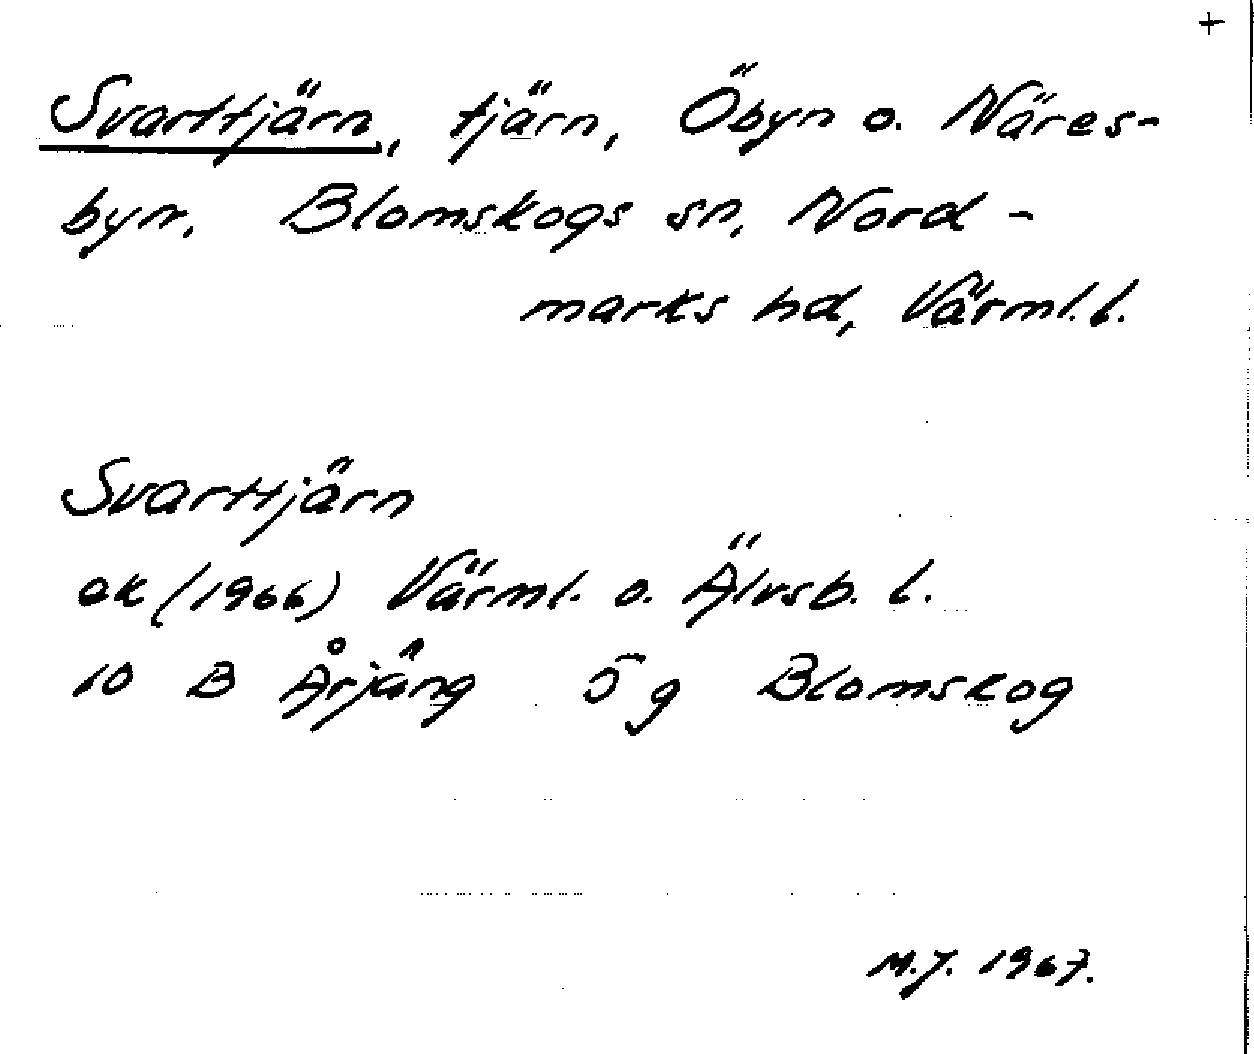 +
Svarttjärn, tjärn, Öbyn o. Näres-
byn. Blomskogs sn, Nord-
marks hd, Värml. l.
Svarttjärn
ek (1966) Värml. o. Älvsb. l.
10 B Årjäng 5 g Blomskog
M.J. 1967.